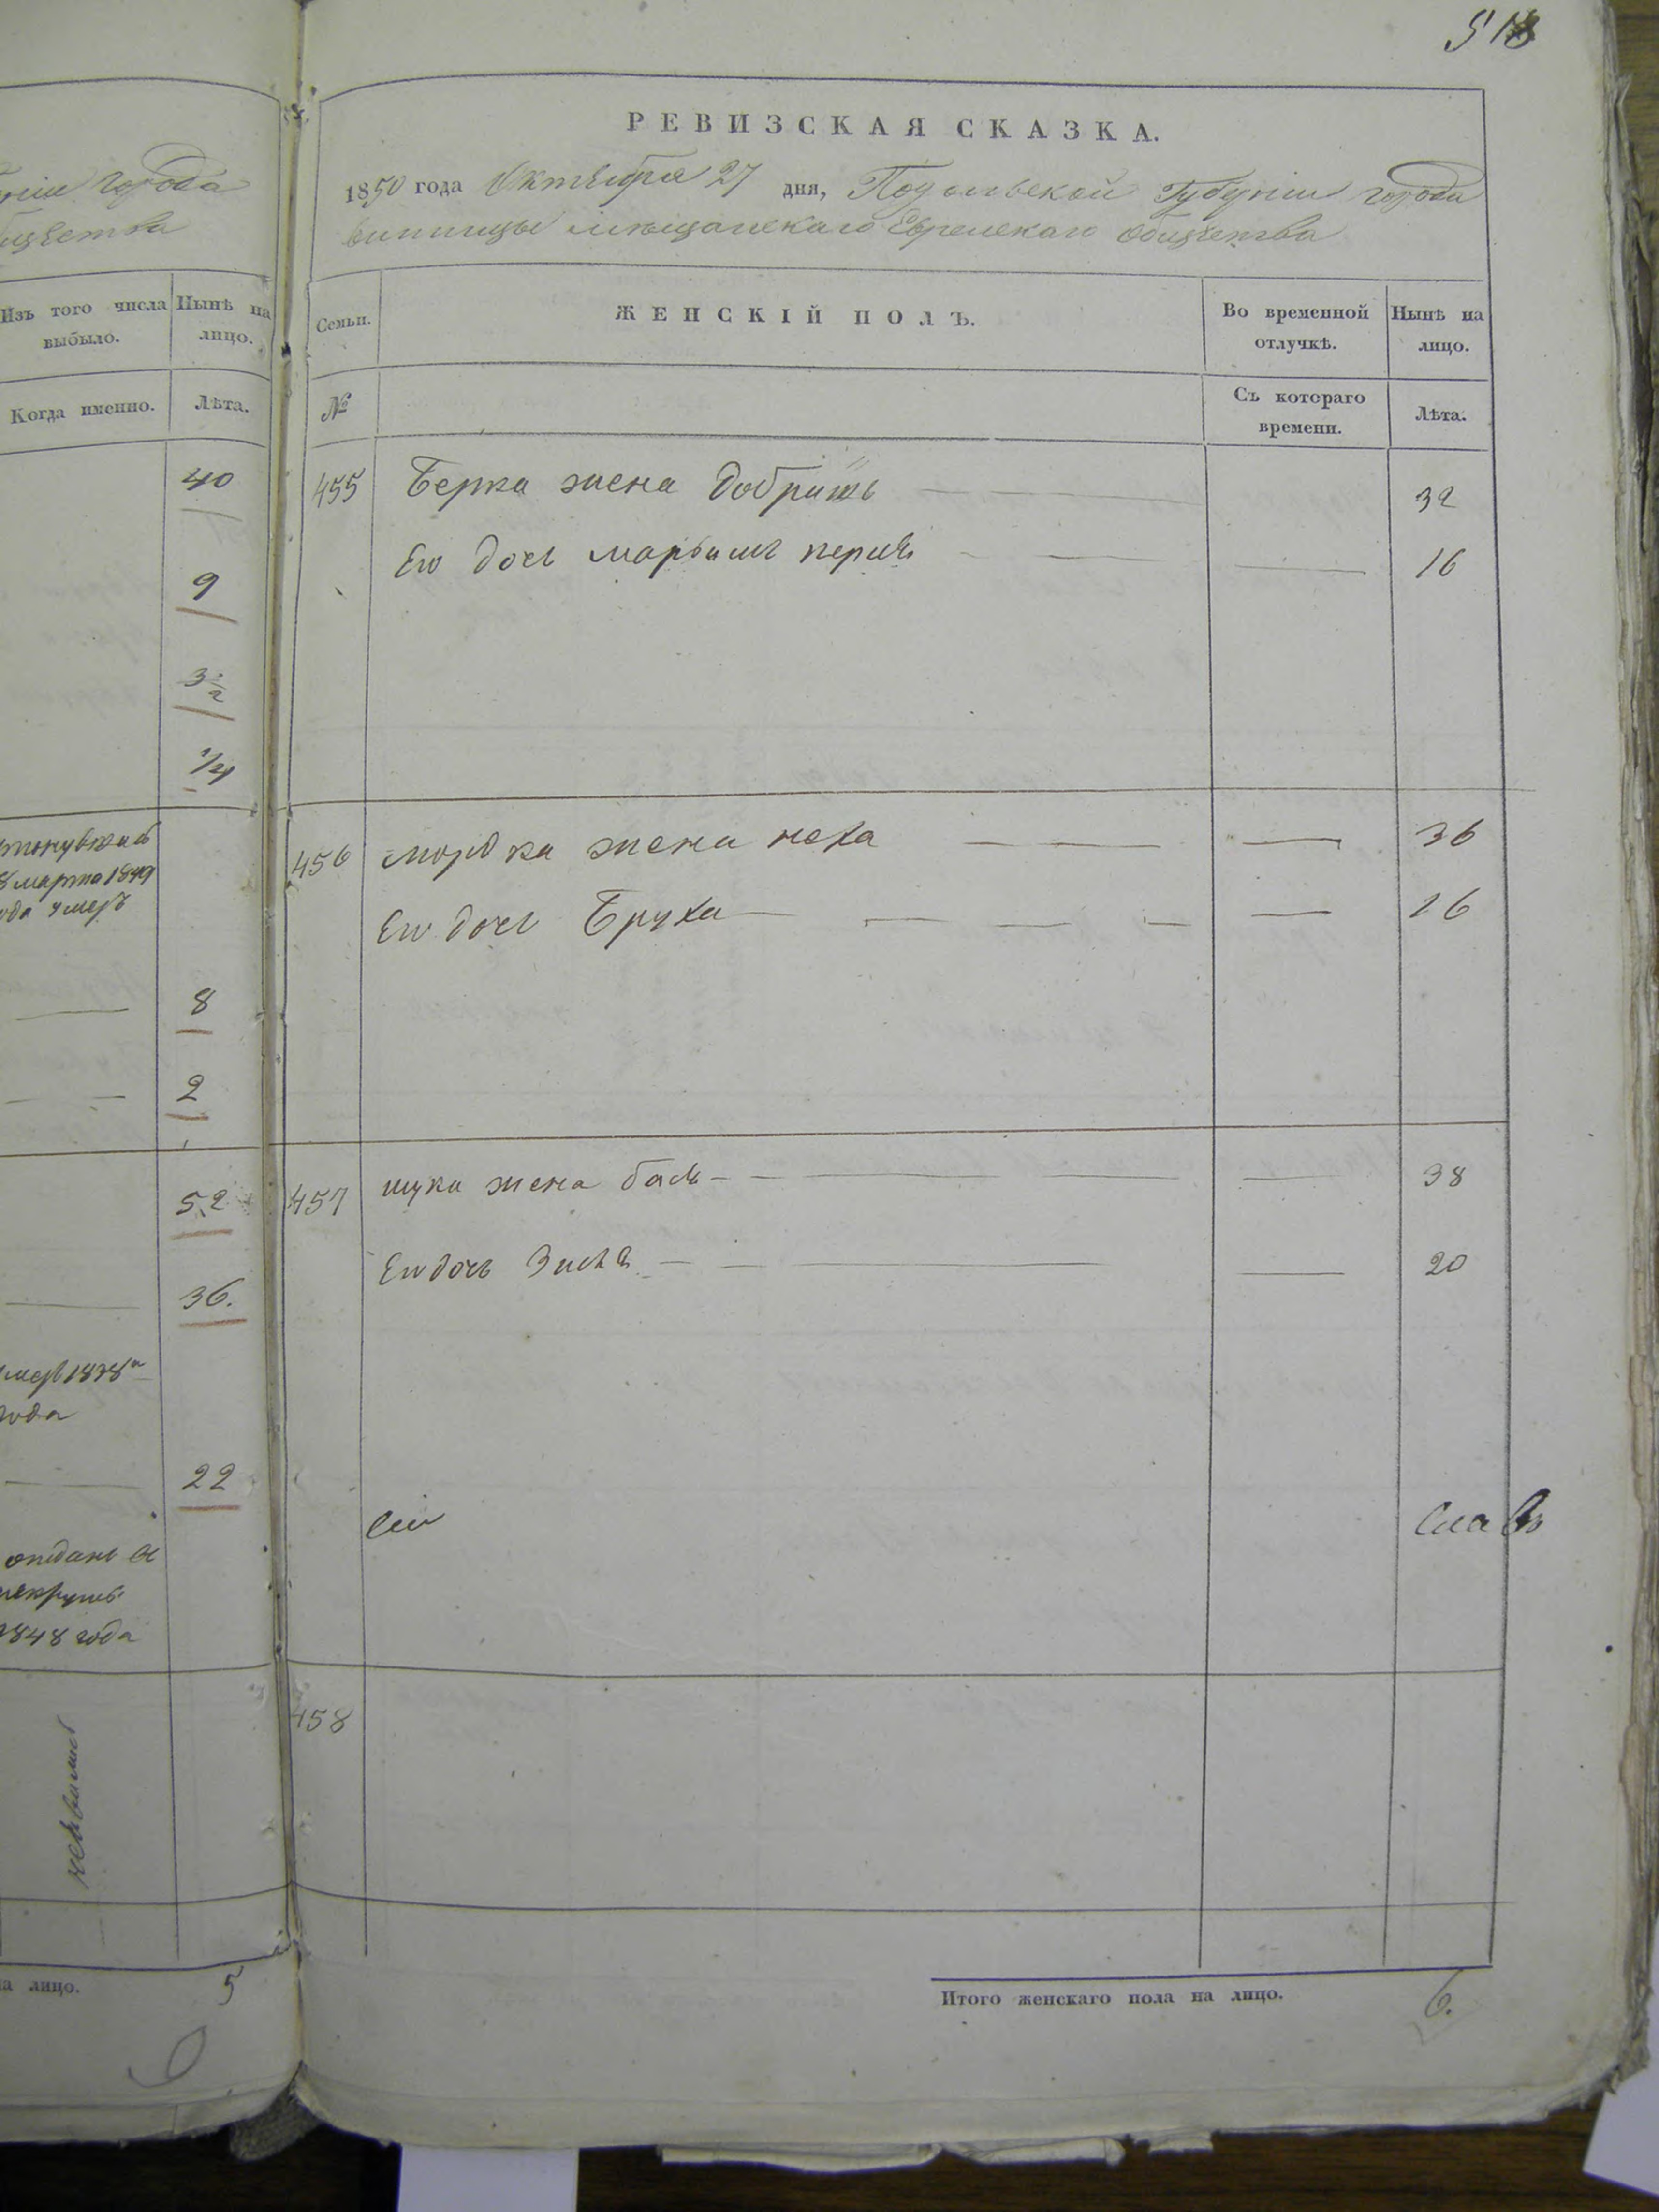 518
РЕВИЗСКАЯ СКАЗКА.
1850 года Октября 27 дня, Подольской Губерніи города
винницы мѣщанскаго Еврейскаго общества
города
общества
Изъ того числа выбыло.
Нынѣ на лицо.
Когда именно.
Лѣта.
Семьи.
ЖЕНСКІЙ ПОЛЪ.
Во временной отлучкѣ.
Нынѣ на лицо.
№
Съ котораго времени.
Лѣта.
40
9
3 1/2
1/4
8 марта 1849
года умеръ
8
2
52
36.
умер 1838
года
22
отданъ в
рекруты
1848 года
455 Берка жена Добришъ 32
Его дочь марьямъ перля 16
456 мордка жена неха 36
Его дочь Бруха 16
457 шука жена бася 38
Его дочь Зисля 20
Сли Слав
458
на лицо. 5
Итого женскаго пола на лицо. 6.